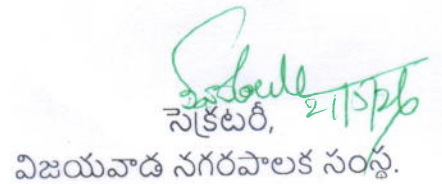 21/5/26
సెక్రటరీ,
విజయవాడ నగరపాలక సంస్థ.